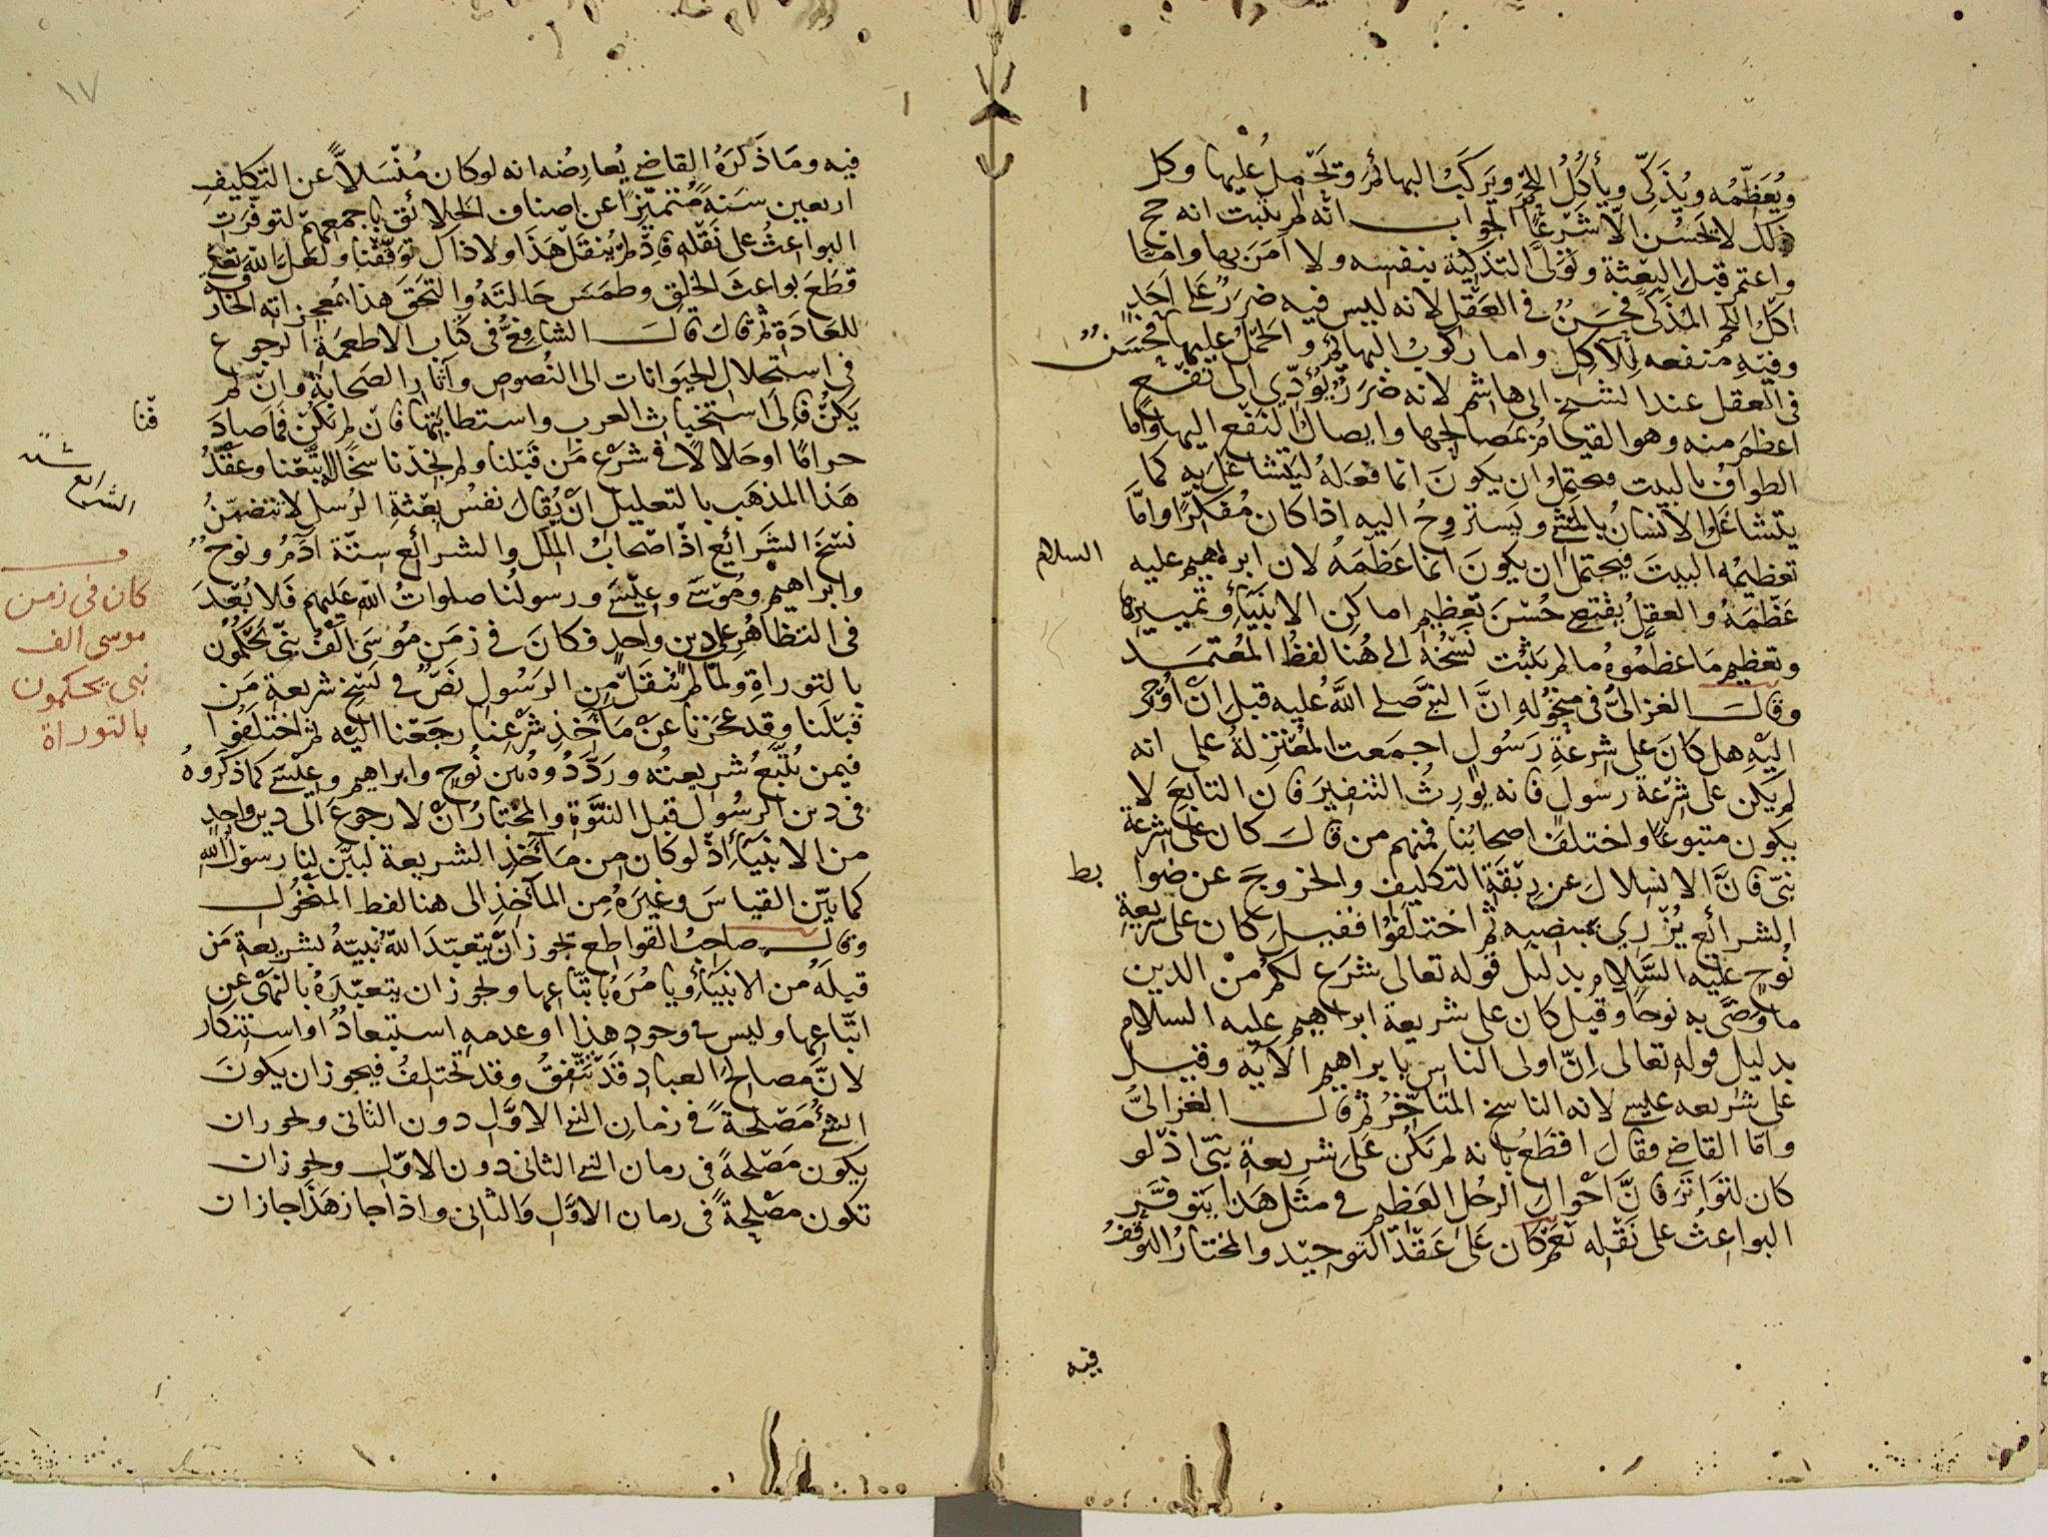 ويُعَظِّمُه ويُذَكِّى ويأكُلُ اللحْمَ ويَركَبُ البهائمَ وتَحْمِلُ عليها وكل
ذلك لا يَحْسُن الّا شَرْعًا الجواب انّه لم يثبت انه حج
واعتمر قبل البِعْثة وتَوَلّى التذكيَة بنفسه ولا اَمَرَ بها وامّا
اكْلُ اللحْم المُذَكّى فحَسَنٌ فى العَقْل لانه ليس فيه ضرَرٌ عَلى اَحَدٍ
وفيه منفعه لِلآكِلِ واما ركوبُ البهائم والحَمْلُ عليها فحَسَنٌ
فى العقل عند الشيخ ابى هاشم لانه ضرَرٌ يُؤَدِّي الى نَفْعٍ
اعظَمَ منه وهو القيامُ بمَصالِحِها وايصالُ النفْع اليها وأمّا
الطوافُ بالبيت فيحتمِلُ ان يكونَ انما فعَلهُ ليَتشاغَلَ به كما
يتشاغَلُ الانسانُ بالمَشْىِ ويَستروِحُ اليه اذا كان مُفَكِّرًا وامَّا
تعظيمُه البيتَ فيحتمل ان يكونَ انما عَظَّمَهُ لان ابرهيم عليه السلام
عَظَّمَهُ والعقلُ يقتضِى حُسْنَ تعظيم اماكن الانبيَاءِ وتمييزها
وتعظيمِ مَا عَظَّمُوهُ ما لم يَثْبُت نَسْخُهُ الى هُنا لفظُ المُعْتَمَد
وقال الغزالىُّ فى منخُولِهِ انَّ النبىَّ صلى اللهُ عليه قبل انْ اُوْحِىَ
اليْهِ هل كانَ على شِرعَةِ رَسُولٍ اجمَعت المُعْتزِلةُ على انه
لم يكن على شِرْعَةِ رسولٍ فانه يُورِثُ التنفيرَ فان التابِعَ لا
يكون متبوعًا واختلَفَ اصحابُنا فمنهم من قالَ كان على شرعة
نبىّ فانَّ الانسِلالَ عن رِبْقَةِ التكليف والخروجَ عن ضوا بط
الشرائعِ يُزْرِي بمنصبه ثم اختلَفُوا فقيلَ كان على شريعةِ
نُوحٍ عليه السَّلام بدليل قوله تعالى شرَع لكم مِنْ الدين
ما وَصَّى به نوحًا وقيل كان على شريعة ابراهيم عليه السلام
بدليل قوله تعالى اِنّ اولى الناس بابراهيم الآيَه وقيل
على شريعه عيسى لانه الناسخ المتأخّرُ ثم قال الغزالىُّ
وامّا القاضى فقال اقطَعُ بانه لم يكُن عَلى شريعةِ نبىٍّ اذْ لو
كان لتَوَاتَرَ فانَّ اَحْوالَ الرجُلِ العَظِيم فى مثل هَذا يَتوفَّر
البواعثُ على نَقْلِه نَعم كان عَلَى عَقْدِ التوحيد والمختارُ التوقّفُ
فيه
١٧
فيه ومَا ذَكرَهُ القاضى يُعارِضُه انه لو كان مُنْسَلاًّ عن التكليفِ
اربعين سَنةً مُتميِّزًا عن اصناف الخلائق باجمعهم لتوفّرَت
البواعثُ على نَقْلِه فاِذْ لم يُنقَلْ هَذَا ولا ذاكَ تَوقَّفْنا ولعَلّ الله تعالى
قطَعَ بواعثَ الخلْقِ وطمَسَ حَالتَهُ والتحَقَ هذا بمُعجزاته الخارقة
للعَادَةِ ثم قال قال الشافعىُّ فى كتاب الاطعِمَةِ الرجوع
فى استحلالِ الحيَوانات الى النُصوصِ وآثارِ الصَحابَةِ وانْ لم
يَكُنْ فإِلَى استخباث العرب واستطابَتها فاِنْ لم تَكُنْ فما صادَفنا
حرامًا اوحَلالاً فى شرْع مَن قَبْلنا ولم نَجِدْ ناسخًا له اتّبَعْنا وعَقْدُ
هَذا المذهب بالتعليل انْ يُقالَ نفسُ بِعْثةِ الرُسل لا تتضمّنُ
نسْخَ الشَرائِع اذْ اصْحابُ المِلَلِ والشرائع ستّة آدَمُ ونوحٌ
وابراهيم ومُوسَى وعِيْسَى ورسولُنا صلواتُ الله عَليهم فَلا بُعْدَ
فى التظاهُرِ على دين واحدٍ فكانَ فى زمَنِ مُوسَى اَلْفُ نبىٍّ يَحْكُمُون
بالتوراةِ ولمّا لم يُنْقَلْ مِن الرَسُولِ نَصٌّ فى نَسْخ شريعة مَن
قَبْلَنا وقد عجَزنا عَنْ مَأْخَذِ شَرْعِنا رجَعْنا اليْه ثم اختلَفُوا
فيمن يُتَّبَعُ شريعتُه ورَدَّدُوهُ بين نُوحٍ وابراهيم وعيْسَى كما ذكَرُوهُ
فى دين الرسُول قبل النبُوّةِ والمختارُ انْ لا رجوعَ الى دين واحدٍ
من الانبيَاءِ اِذْ لو كان مِن مَآخذِ الشريعة لبَيَّن لنا رسولُ الله
كما بيّن القياسَ وغيرَهُ من المآخِذِ الى هنا لفظ المنخُول
وقال صاحِبُ القواطع يجوز انْ يتعبّدَ اللهُ نَبيّهُ بشريعةِ مَن
قبلَهُ من الانبيَاءِ ويأمُرَهُ باتّباعها ويجوز ان يتعبّدَهُ بالنهْىِ عن
اتّباعها وليس فى وجودِ هذا او عدمه استبعادٌ او استنكار
لانَّ مصالحَ العبادِ قَدْ يَتَّفِقُ وقد تختلفُ فيجوز ان يكونَ
الشئ مَصْلحةً فى زمانِ النبى الاوَّلِ دون الثانى ويجوز ان
يكون مَصْلحةً فى زمان النبى الثانى دون الاوّل ويجوز ان
تكون مَصْلحةً فى زمان الاوَّلِ وَالثانى واذا جاز هَذا جاز ان
الشرايع ستة
كان فى زمن
موسى الف
نبى يحكمون
بالتوراة